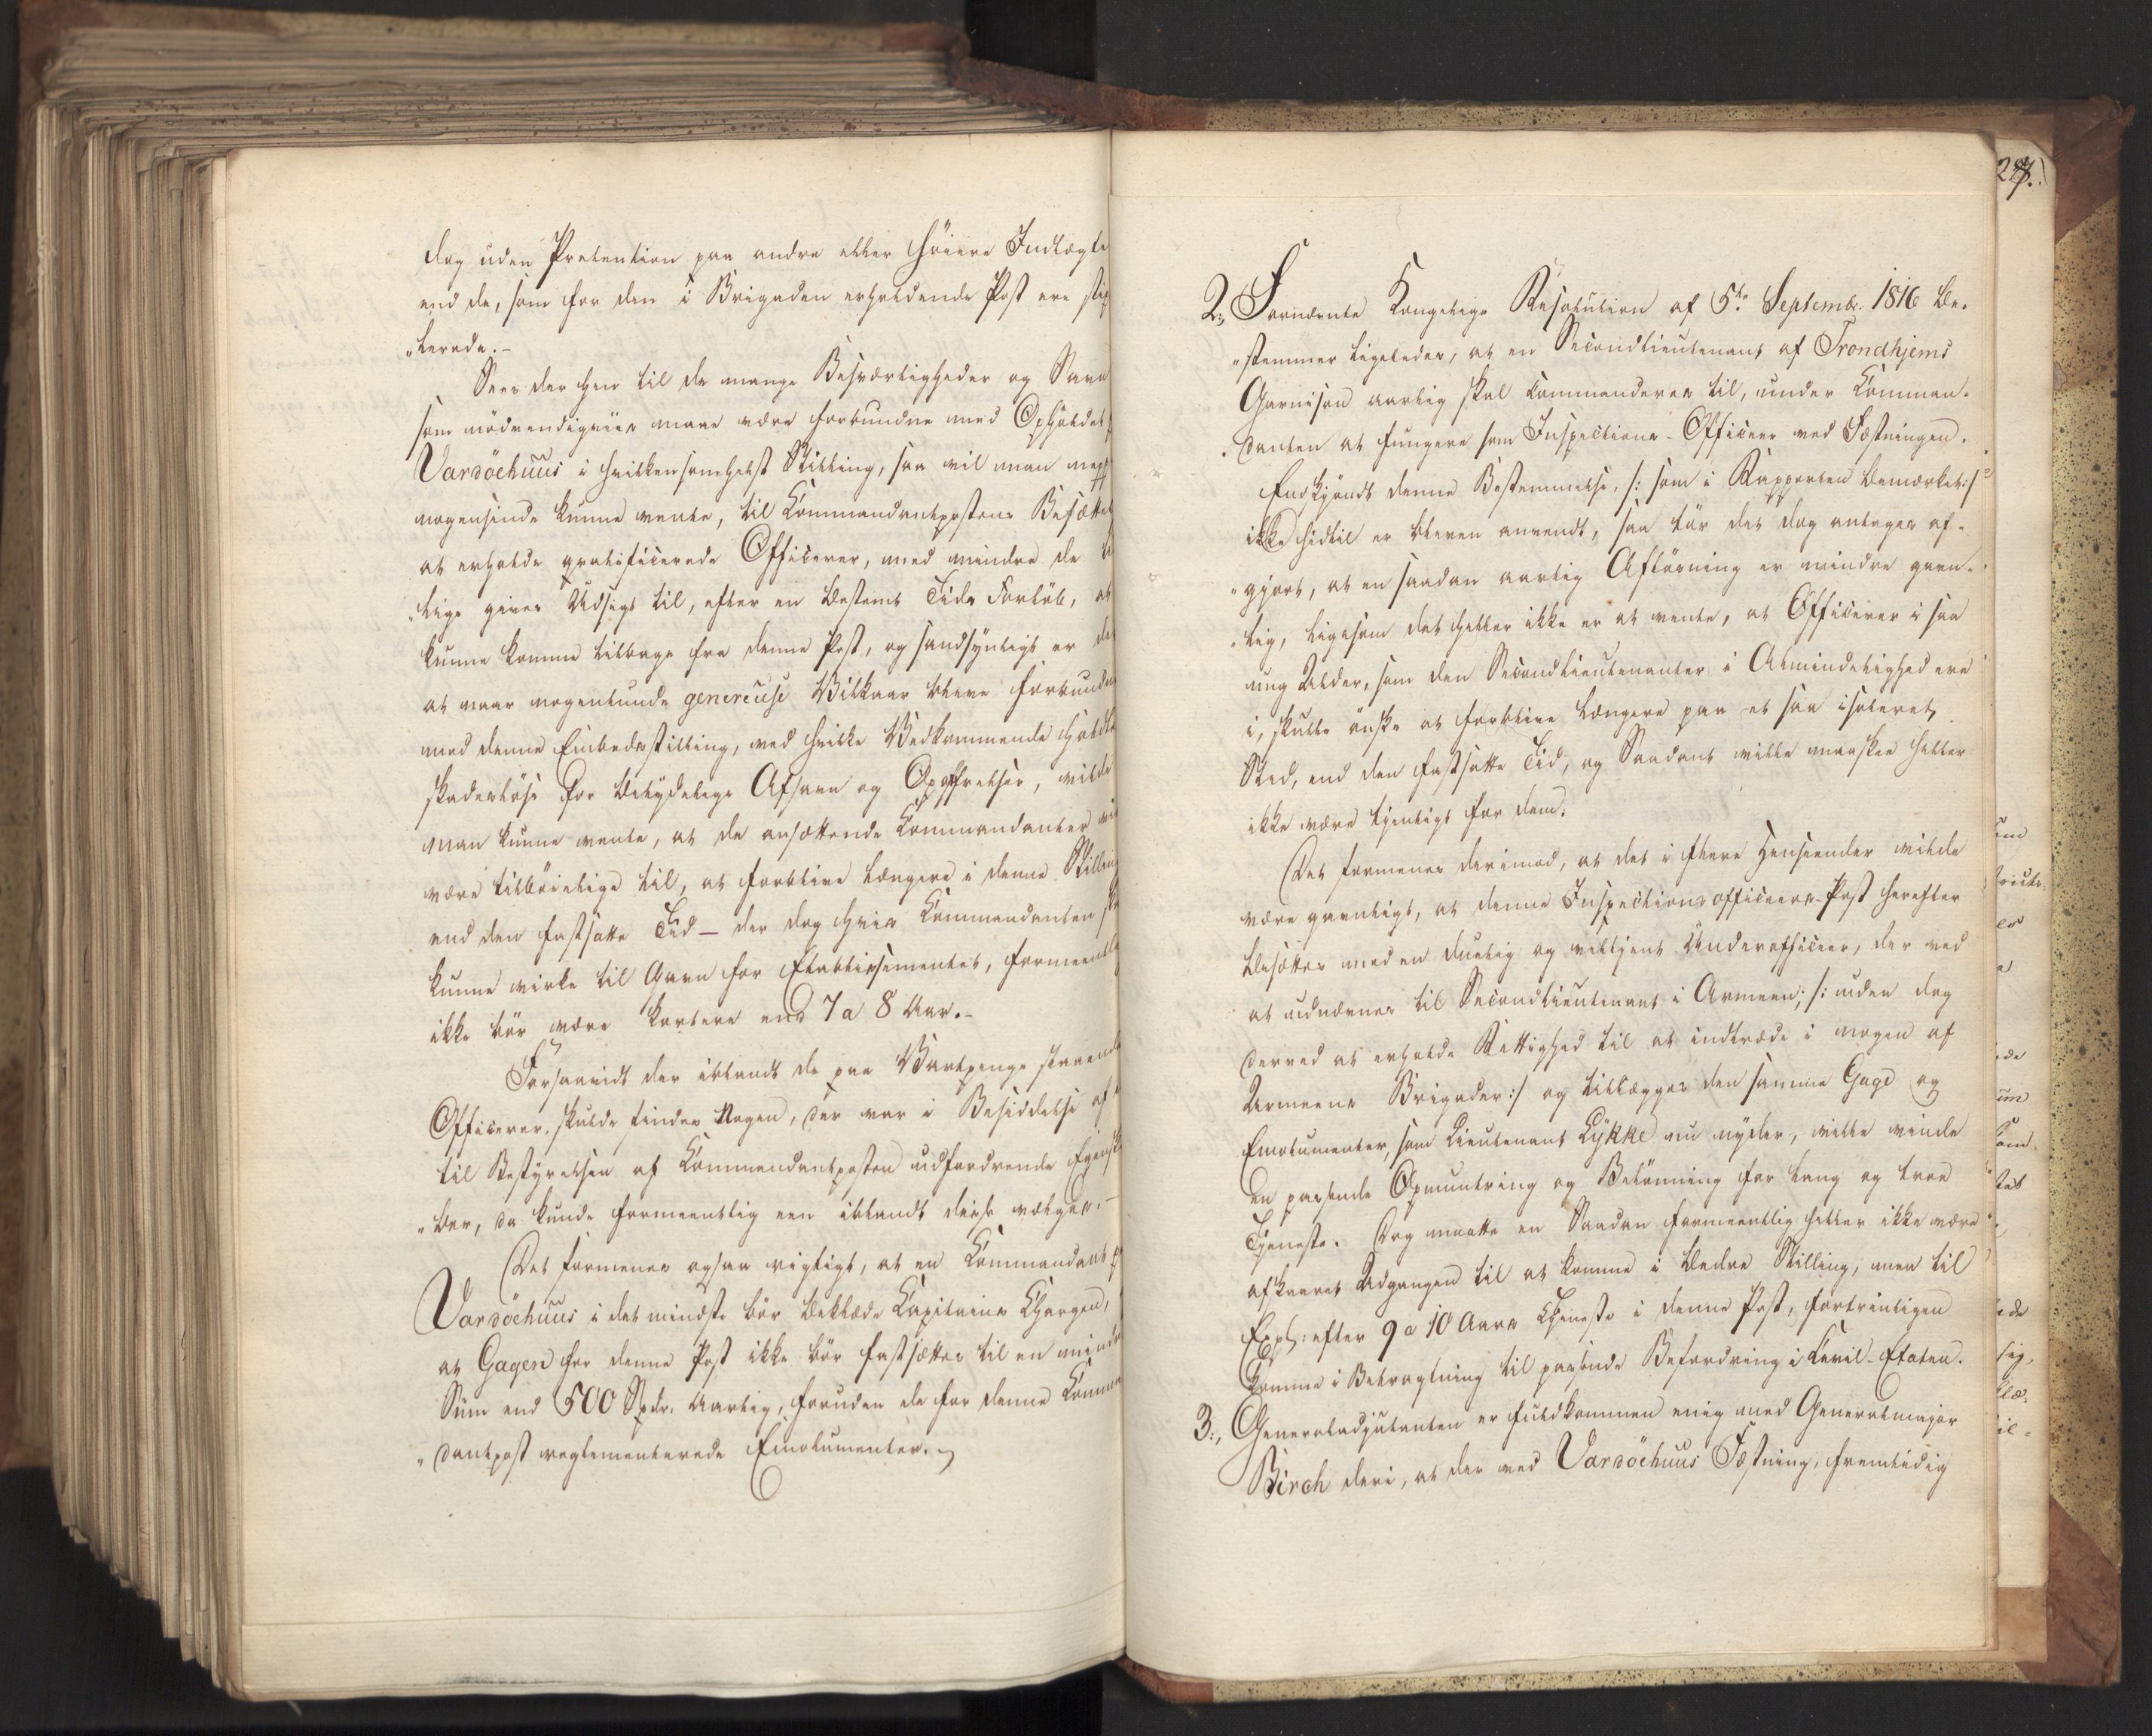 dog uden Pretention paa andre eller høiere Indtægte
end de, som for den i Brigaden erholdende Post ere stip
„lerede.-
Sees der hen til de mange Besværligheder og Savn
som nødvendigviis maae være forbundne med Opholdet p
Vardöehuus i hvilkensomhelst Stilling, saa vil man nep
nogensinde kunne vente, til Commandantpostens Besætte
at erholde qvalificerede Officerer, med mindre de
„lige gives Udsigt til, efter en bestemt Tids Forløb, at
kunne komme tilbage fra denne Post, og sandsynligt er de
at naar nogenlunde genereuse Vilkaar bleve forbundne
med denne Embedsstilling, ved hvilke Vedkommende holdtes
skadesløse for betydelige Afsavn og Opoffrelser, vilde
man kunne vente, at de ansættende Commandanter
være tilbøielige til, at forblive længere i denne Stilling
end den fastsatte Tid – der dog hvis Commandanten sk
kunne virke til Gavn for Etablissementet, formeentlig
ikke bør være kortere end 7 a 8 Aar.-
Forsaavidt der iblandt de paa Vartpenge staaende
Officerer, skulde findes Nogen, der var i Besiddelse af
til Bestyrelsen af Commandantposten udfordrende Egensk
„ber, da kunde formeentlig een iblandt disse vælges.-
Det formenes ogsaa vigtigt, at en Commandant p
Vardöehuus i det mindste bør beklæde Capitains Chargen,
at Gagen for denne Post ikke bør fastsættes til en mindre
Sum end 500 Spdr. aarlig, foruden de for denne Comman
„dantpost reglementerede Emolumenter.
247.
2., Fornævnte Kongelige Resolution af 5te Septemb. 1816 be-
„stemmer ligeledes, at en Secondlieutenant af Trondhjems
Garnison aarlig skal commanderes til, under Comman-
„danten at fungere som Inspections-Officeer ved Fæstningen.
Endskjøndt denne Bestemmelse, /: som i Rapporten bemærket :/
ikke hidtil er bleven anvendt, saa tør det dog antages af-
„gjort, at en saadan aarlig Afløsning er mindre gavn-
„lig, ligesom det heller ikke er at vente, at Officerer i saa
ung Alder, som den Secondlieutenanter i Almindelighed ere
i, skulle ønske at forblive længere paa et saa isoleret
Sted, end den fastsatte Tid, og Saadant vilde maaskee heller
ikke være tjenligt for dem.
Det formenes derimod, at det i flere Henseender vilde
være gavnligt, at denne Inspectionsofficeers-Post herefter
besættes med en duelig og veltjent Underofficeer, der ved
at udnævnes til Secondlieutenant i Armeen, /: uden dog
derved at erholde Rettighed til at indtræde i nogen af
Armeens Brigader :/ og tillægges den samme Gage og
Emolumenter, som Lieutenant Lykke nu nyder, vilde vinde
en passende Opmuntring og Belønning for lang og troe
Tjeneste. Dog maatte en Saadan formeentlig heller ikke være
afskaaret Adgangen til at komme i bedre Stilling, men til
Expl: efter 9 a 10 Aars Tjeneste i denne Post, fortrinligen
komme i Betragtning til passende Befordring i Civil-Etaten.
3., Generaladjutanten er fuldkommen enig med Generalmajor
Birch deri, at der ved Vardöehuus Fæstning, fremtidig